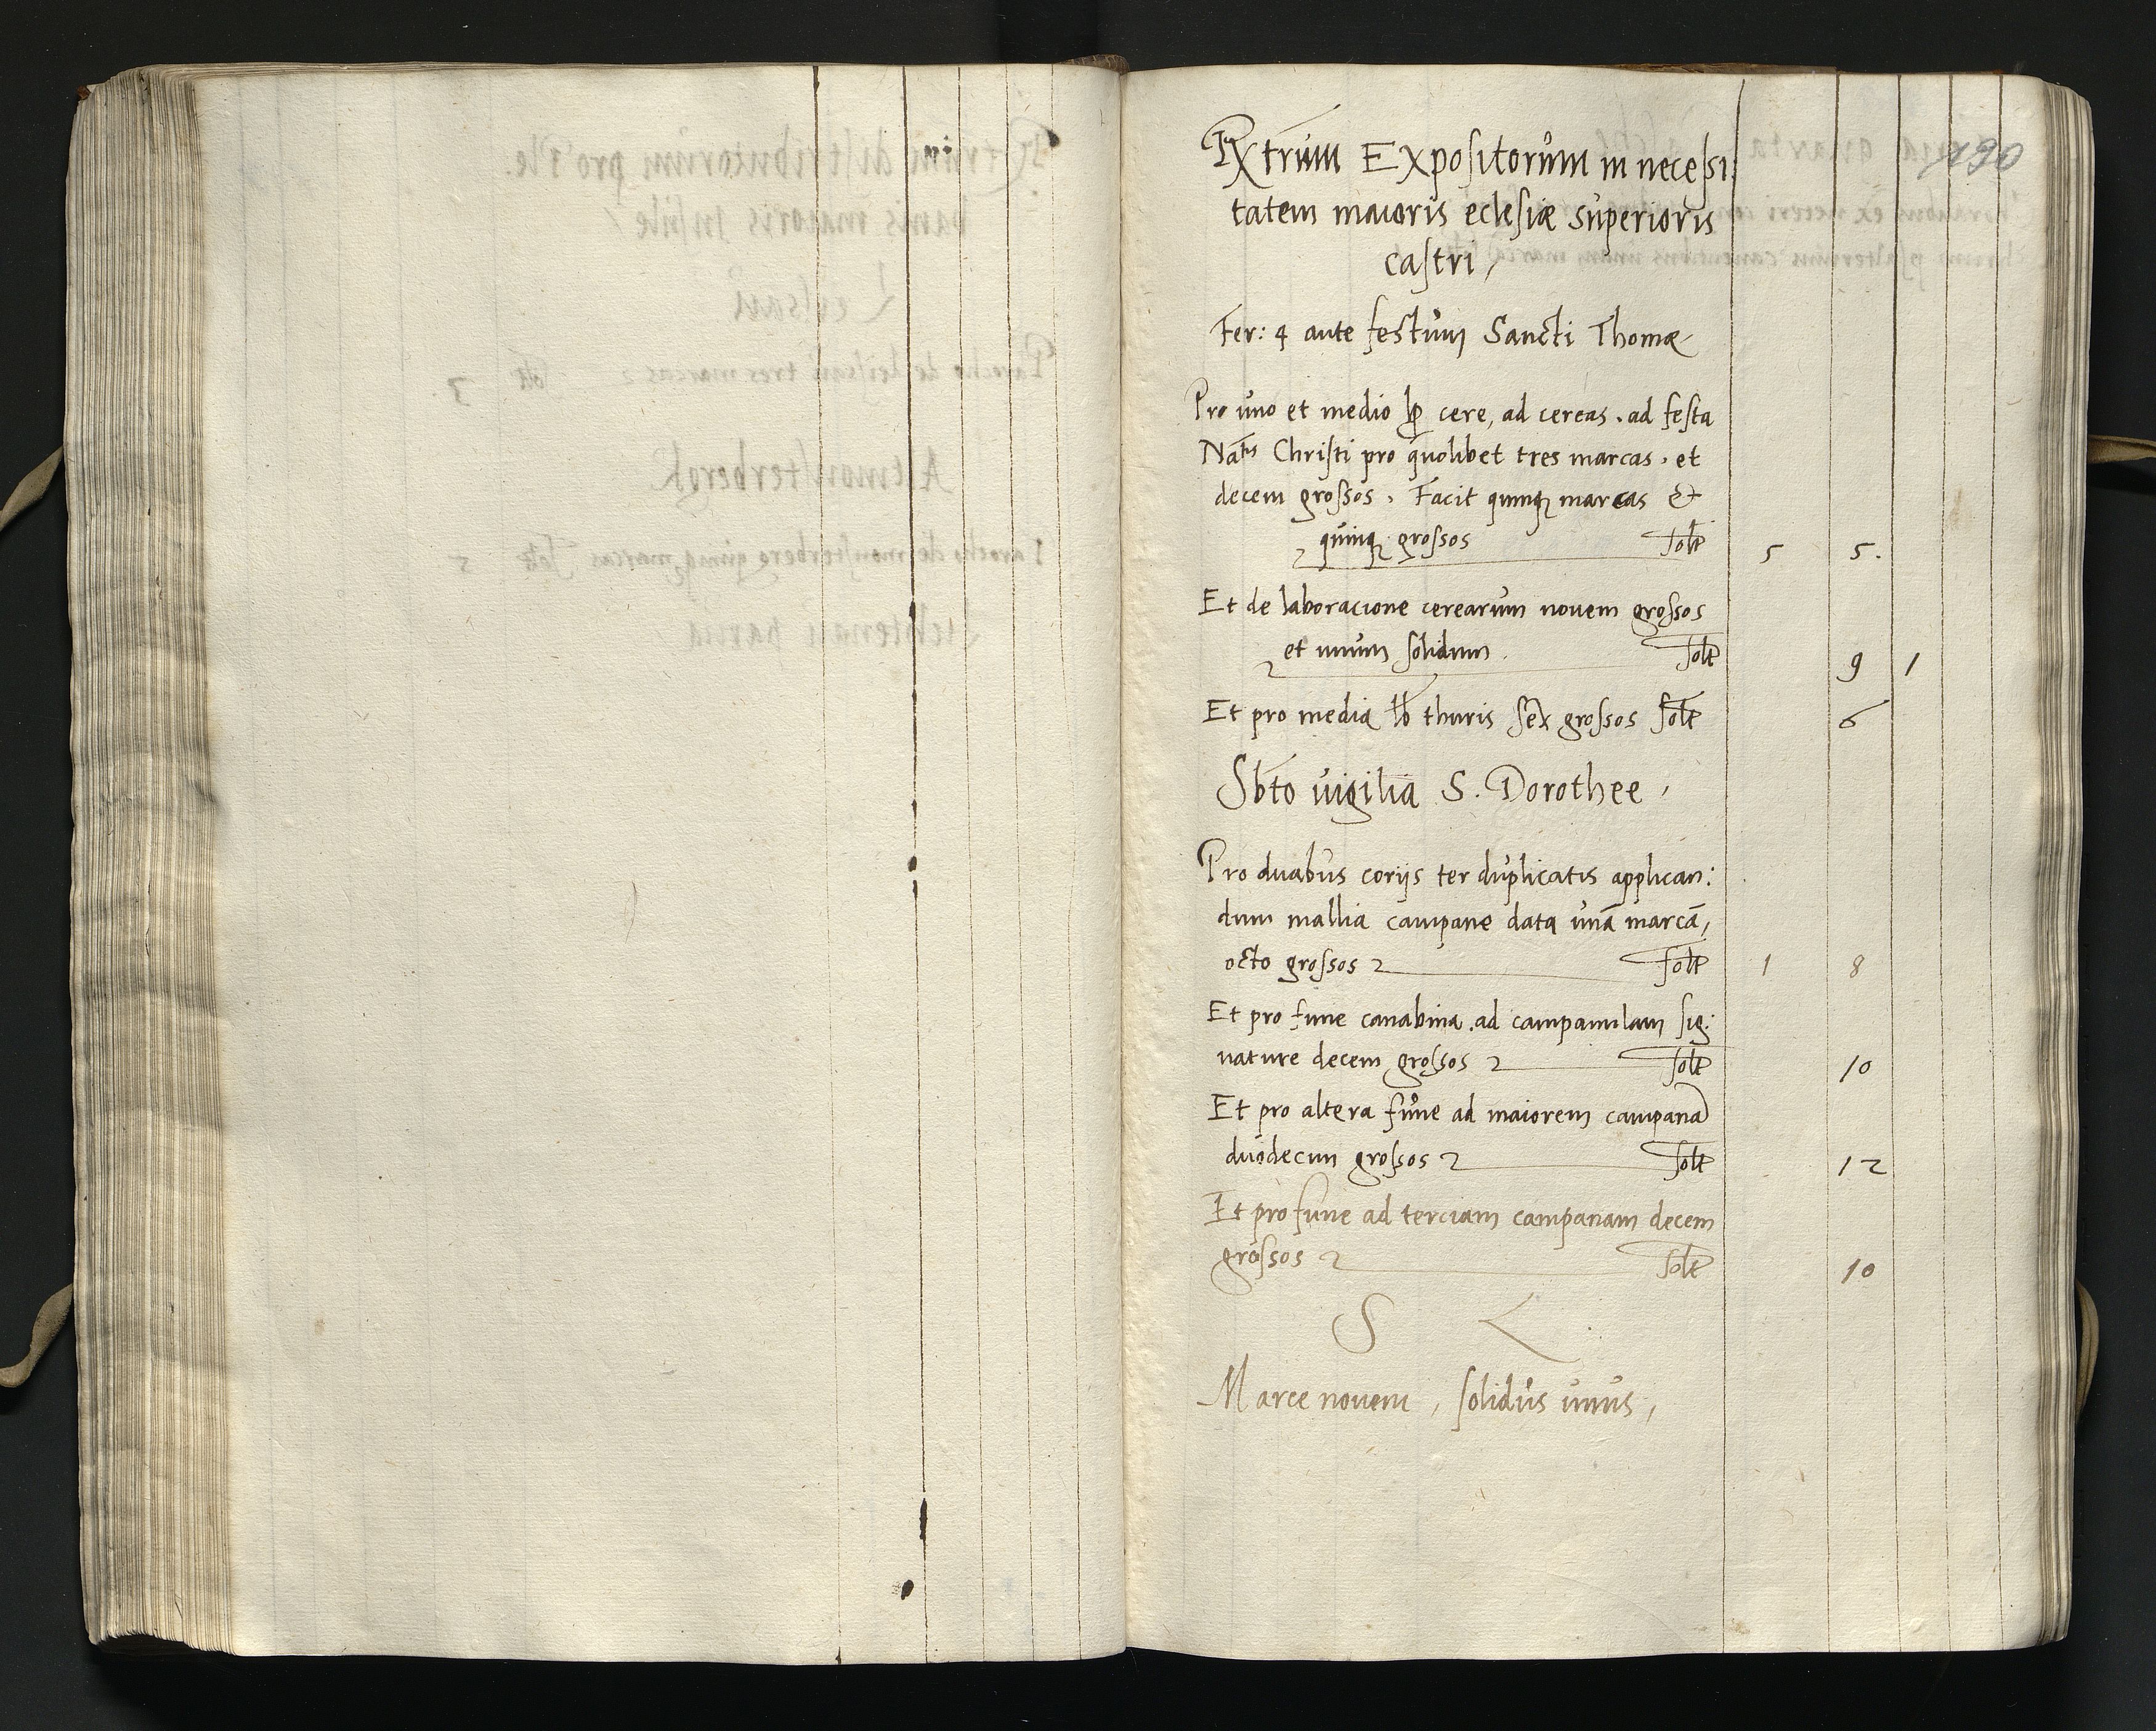 190
Rx̄trum Expositorum in necessi:
tatem maioris eclesiæ superioris
castri,
Fer: 4 ante festum Sancti Thomæ
Pro uno et medio cere, ad cereas. ad festa
Natis Christi pro quolibet tres marcas. et
decem grossos. Facit quinqꝫ marcas et
quinqꝫ grossos solt 5 5.
Et de laboracione cerearum novem grossos
et unum solidum. solt 9 1
Et pro media lb thuris sex grossos solt 6
Sbto vigilia S. Dorothee,
Pro duabus corijs ter duplicatis applican:
dum mallia campane data unā marcā,
octo grossos solt 1 8
Et pro fune canabina. ad campanulam sig:
nature decem grossos solt 10
Et pro altera fune ad maiorem campanā
duodecim grossos solt 12
Et pro fune ad terciam campanam decem
grossos solt 10
S L
Marce novem, solidus unus,